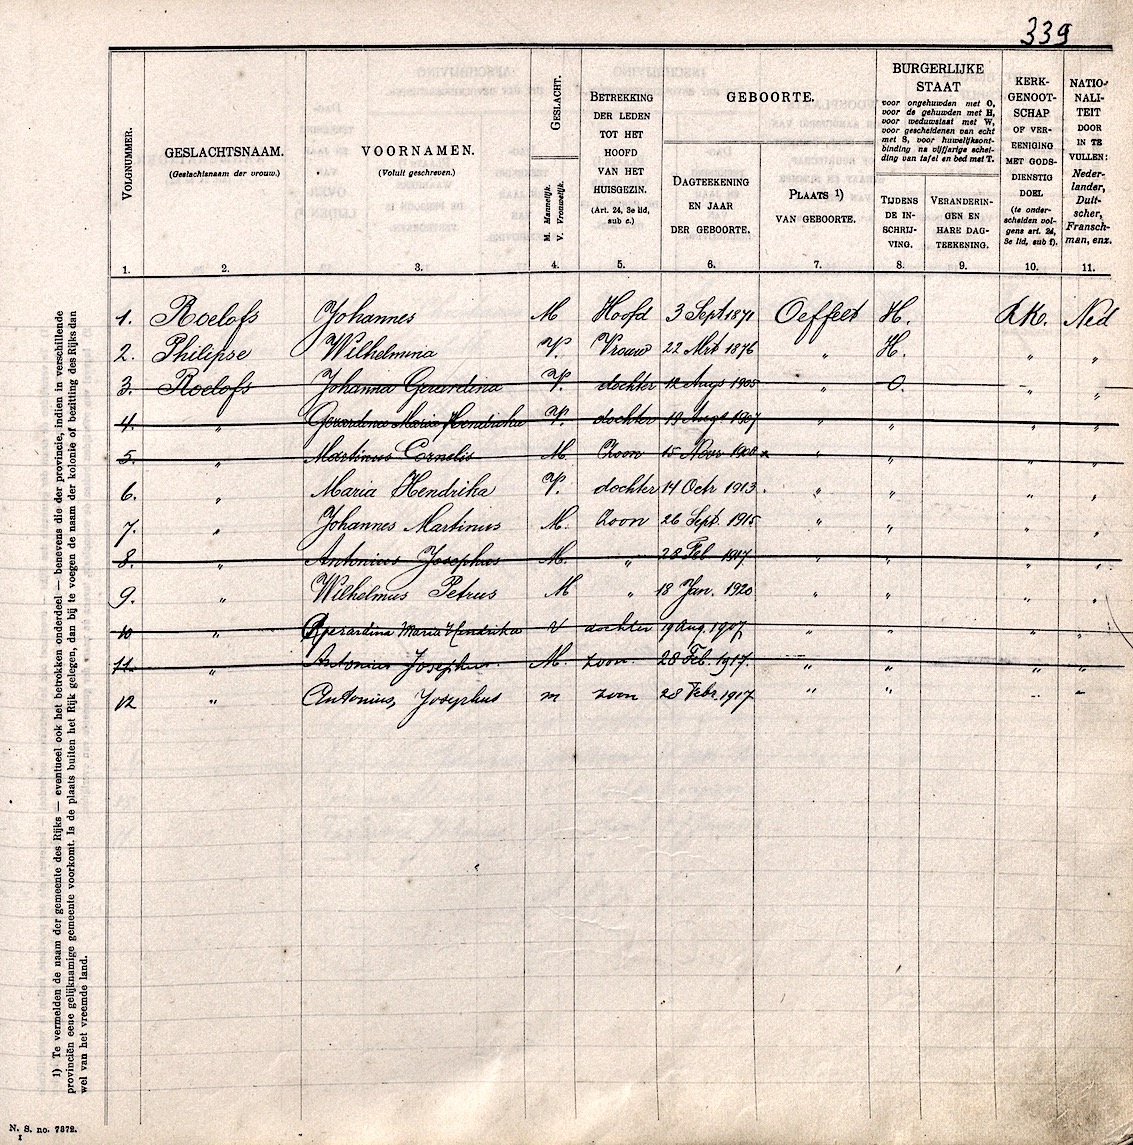 339
VOLGNUMMER.
GESLACHTSNAAM.
(Geslachtsnaam der vrouw.)
VOORNAMEN.
(Voluit geschreven.)
GESLACHT.
M. Mannelijk.
V. Vrouwelijk.
BETREKKING
DER LEDEN
TOT HET
HOOFD
VAN HET
HUISGEZIN.
(Art. 24, 3e lid,
sub c.)
GEBOORTE.
DAGTEEKENING
EN JAAR
DER GEBOORTE.
PLAATS 1)
VAN GEBOORTE.
BURGERLIJKE
STAAT
voor ongehuwden met O,
voor de gehuwden met H,
voor weduwstaat met W,
voor gescheidenen van echt
met S, voor huwelijksont-
binding na vijfjarige schei-
ding van tafel en bed met T.
TIJDENS
DE IN-
SCHRIJ-
VING.
VERANDERIN-
GEN EN
HARE DAG-
TEEKENING.
KERK-
GENOOT-
SCHAP
OF VER-
EENIGING
MET GODS-
DIENSTIG
DOEL
(te onder-
scheiden vol-
gens art. 24,
3e lid, sub f).
NATIO-
NALI-
TEIT
DOOR
IN TE
VULLEN:
Neder-
lander,
Duit-
scher,
Fransch-
man, enz.
1. 2. 3. 4. 5. 6. 7. 8. 9. 10. 11.
1. Roelofs Johannes M Hoofd 3 Sept 1871 Oeffelt H. R.K. Ned
2. Philipse Wilhelmina V. Vrouw 22 Mrt 1876 " H. " "
3. Roelofs Johanna Gerardina V. dochter 12 Augs 1905 " O. " "
4. " Gerardina Maria Hendrika V. dochter 19 Augs 1907 " " " "
5. " Martinus Cornelis M Zoon 15 Novr " " " "
6. " Maria Hendrika V. dochter 14 Octr 1913. " " " "
7. " Johannes Martinus M. Zoon 26 Sept. 1915 " " " "
8. " Antonius Josephus M. " 28 Feb 1917. " " " "
9. " Wilhelmus Petrus M " 18 Jan. 1920 " " " "
10 " Gerardina Maria Hendrika V dochter 19 Aug. 1907. " " " "
11. " Antonius Josephus. M. zoon. 28 Feb. 1917. " " " "
12 " Antonius, Josephus m zoon 28 Febr. 1917. " " " "
1) Te vermelden de naam der gemeente des Rijks — eventueel ook het betrokken onderdeel — benevens die der provincie, indien in verschillende
provinciën eene gelijknamige gemeente voorkomt. Is de plaats buiten het Rijk gelegen, dan bij te voegen de naam der kolonie of bezitting des Rijks dan
wel van het vreemde land.
N. S. no. 7372.
I